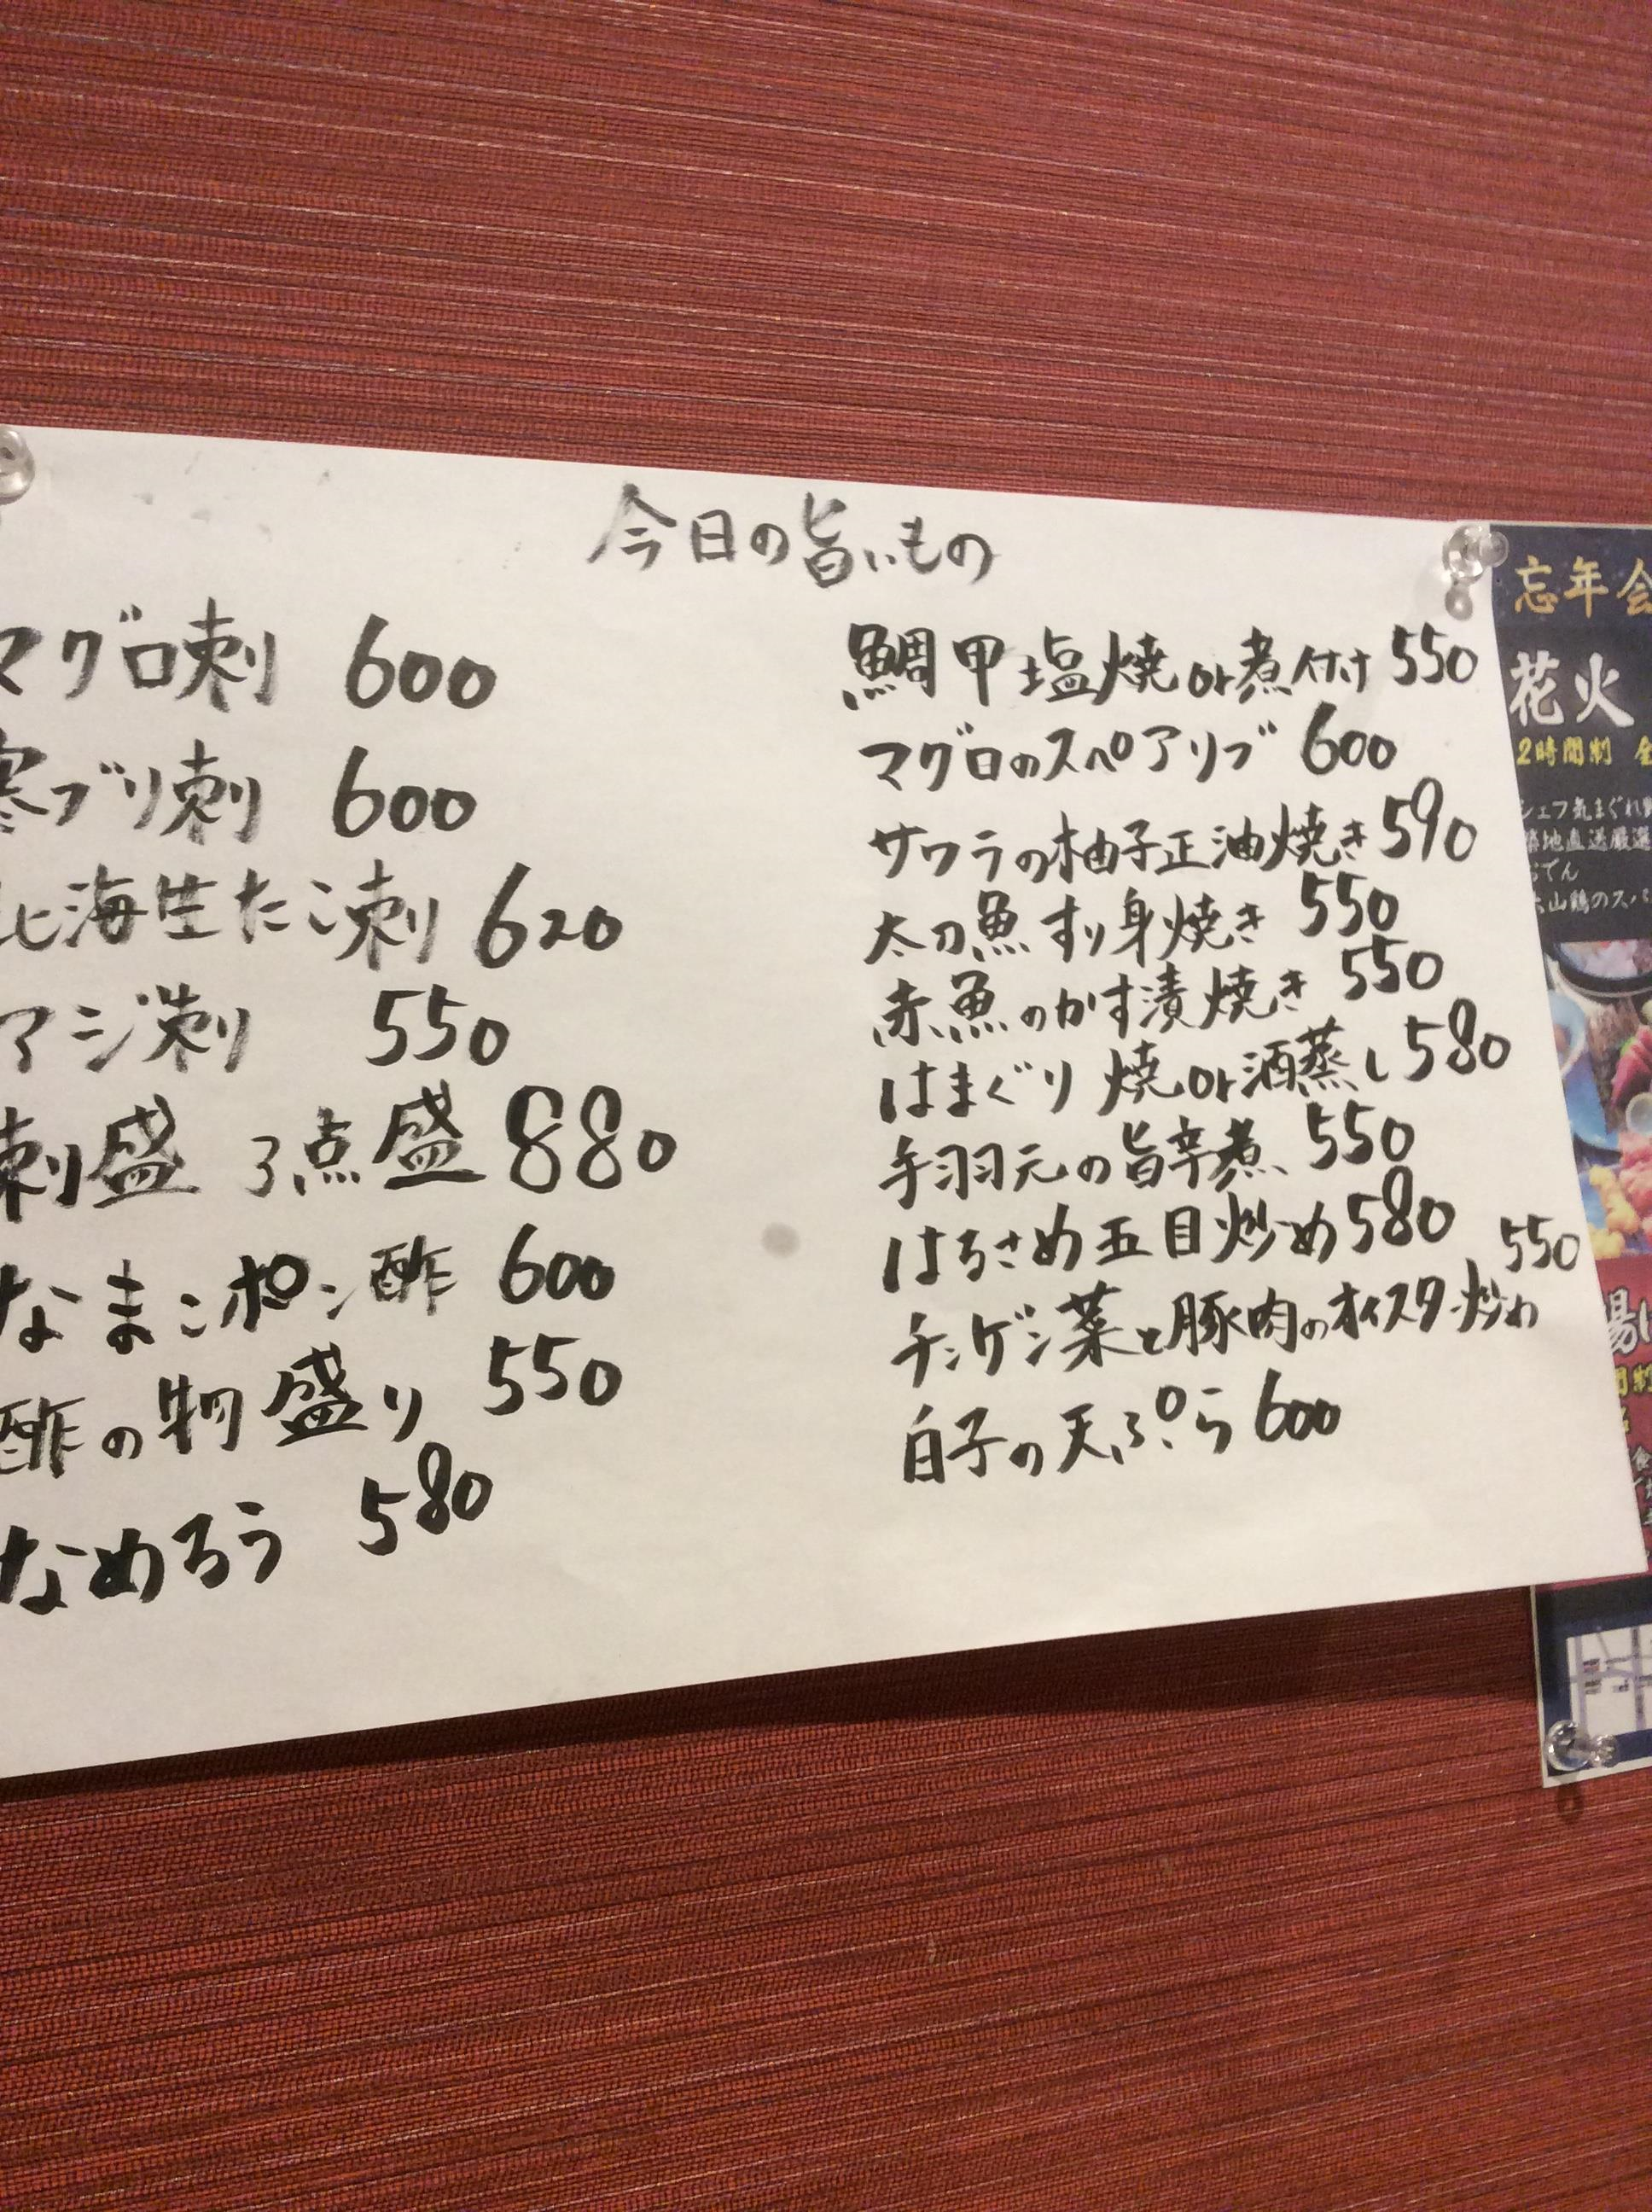 今日の旨いもの
マグロ刺 600
寒ブリ刺 600
北海生たこ刺 620
アジ刺 550
刺盛 3点盛 880
なまこポン酢 600
酢の物盛り 550
なめろう 580
鯛甲塩焼or煮付け 550
マグロのスペアリブ 600
サワラの柚子正油焼き 590
太刀魚すり身焼き 550
赤魚のかす漬焼き 550
はまぐり焼or酒蒸し 580
手羽元の旨辛煮 550
はるさめ五目炒め 580
チンゲン菜と豚肉のオイスター炒め 550
白子の天ぷら 600
忘年会
花火
2時間制
シェフ気まぐれ
築地直送厳選
おでん
大山鶏のスパ